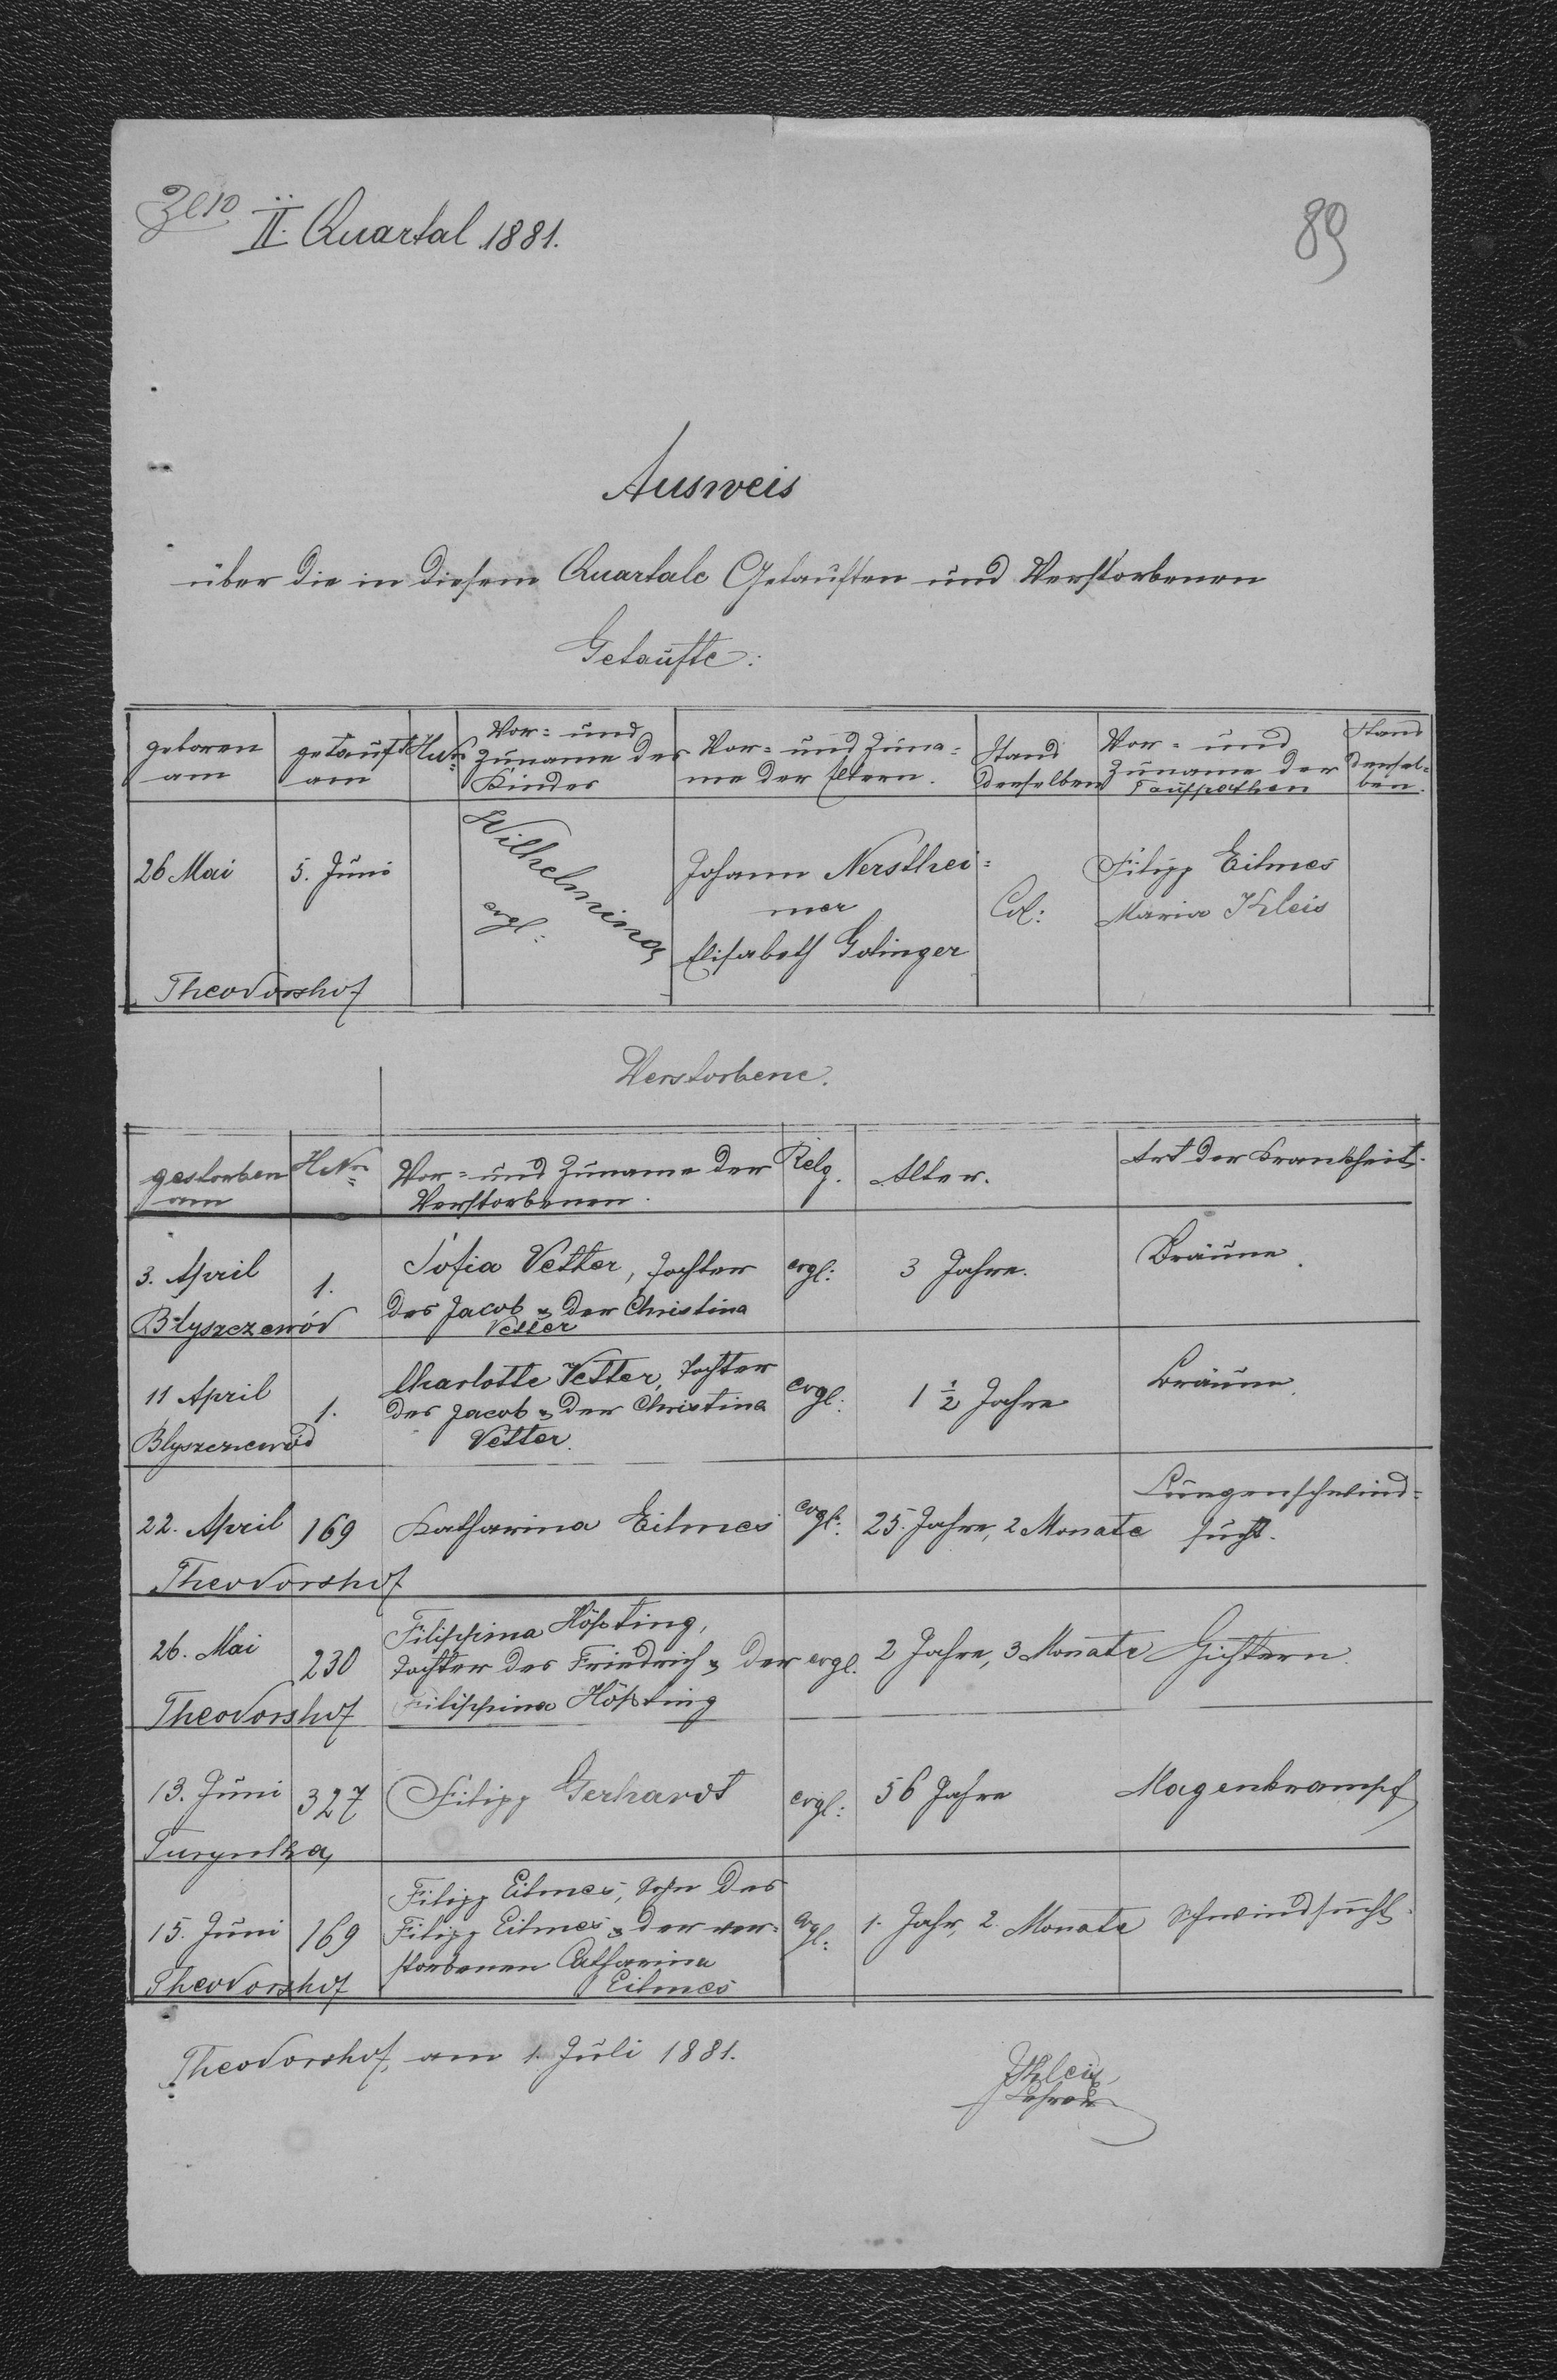 II. Quartal 1881.
89
Ausweis
über die in diesem Quartale Getauften und Verstorbenen
Getaufte:
geboren am | getauft am | HNr. | Vor- und Zuname des Kindes | Vor- und Zuname der Eltern. | Stand derselben | Vor- und Zuname der Taufpathen | Stand derselben.
26 Mai | 5. Juni | Wilhelmina evgl: | Johann Nersthei=
mer
Elisabeth Golinger | Col: | Filipp Eilmes
Maria Kleis
Theodorshof
Verstorbene.
gestorben am | HNr. | Vor- und Zuname der Verstorbenen. | Relg. | Alter. | Art der Krankheit.
3. April | 1. | Sofia Vetter, Tochter
des Jacob & der Christina
Vetter | evgl: | 3 Jahre. | Bräune.
Błyszczewód
11 April | 1. | Charlotte Vetter, Tochter
des Jacob & der Christina
Vetter. | evgl: | 1 ½ Jahre | Bräune.
Blyszczewód
22. April | 169 | Katharina Eilmes | evgl: | 25. Jahre, 2 Monate | Lungenschwind=
sucht.
Theodorshof
26. Mai | 230 | Filippina Hößting,
Tochter des Friedrich & der
Filippina Hößting | evgl. | 2 Jahre, 3 Monate | Gichtern.
Theodorshof
13. Juni | 327 | Filipp Gerhardt | evgl: | 56 Jahre | Magenkrampf
Turynka
15. Juni | 169 | Filipp Eilmes, Sohn des
Filipp Eilmes & der ver=
storbenen Catharina
Eilmes | evgl: | 1. Jahr, 2. Monate | Schwindsucht.
Theodorshof
Theodorshof, am 1. Juli 1881.
JKleis,
Lehrer